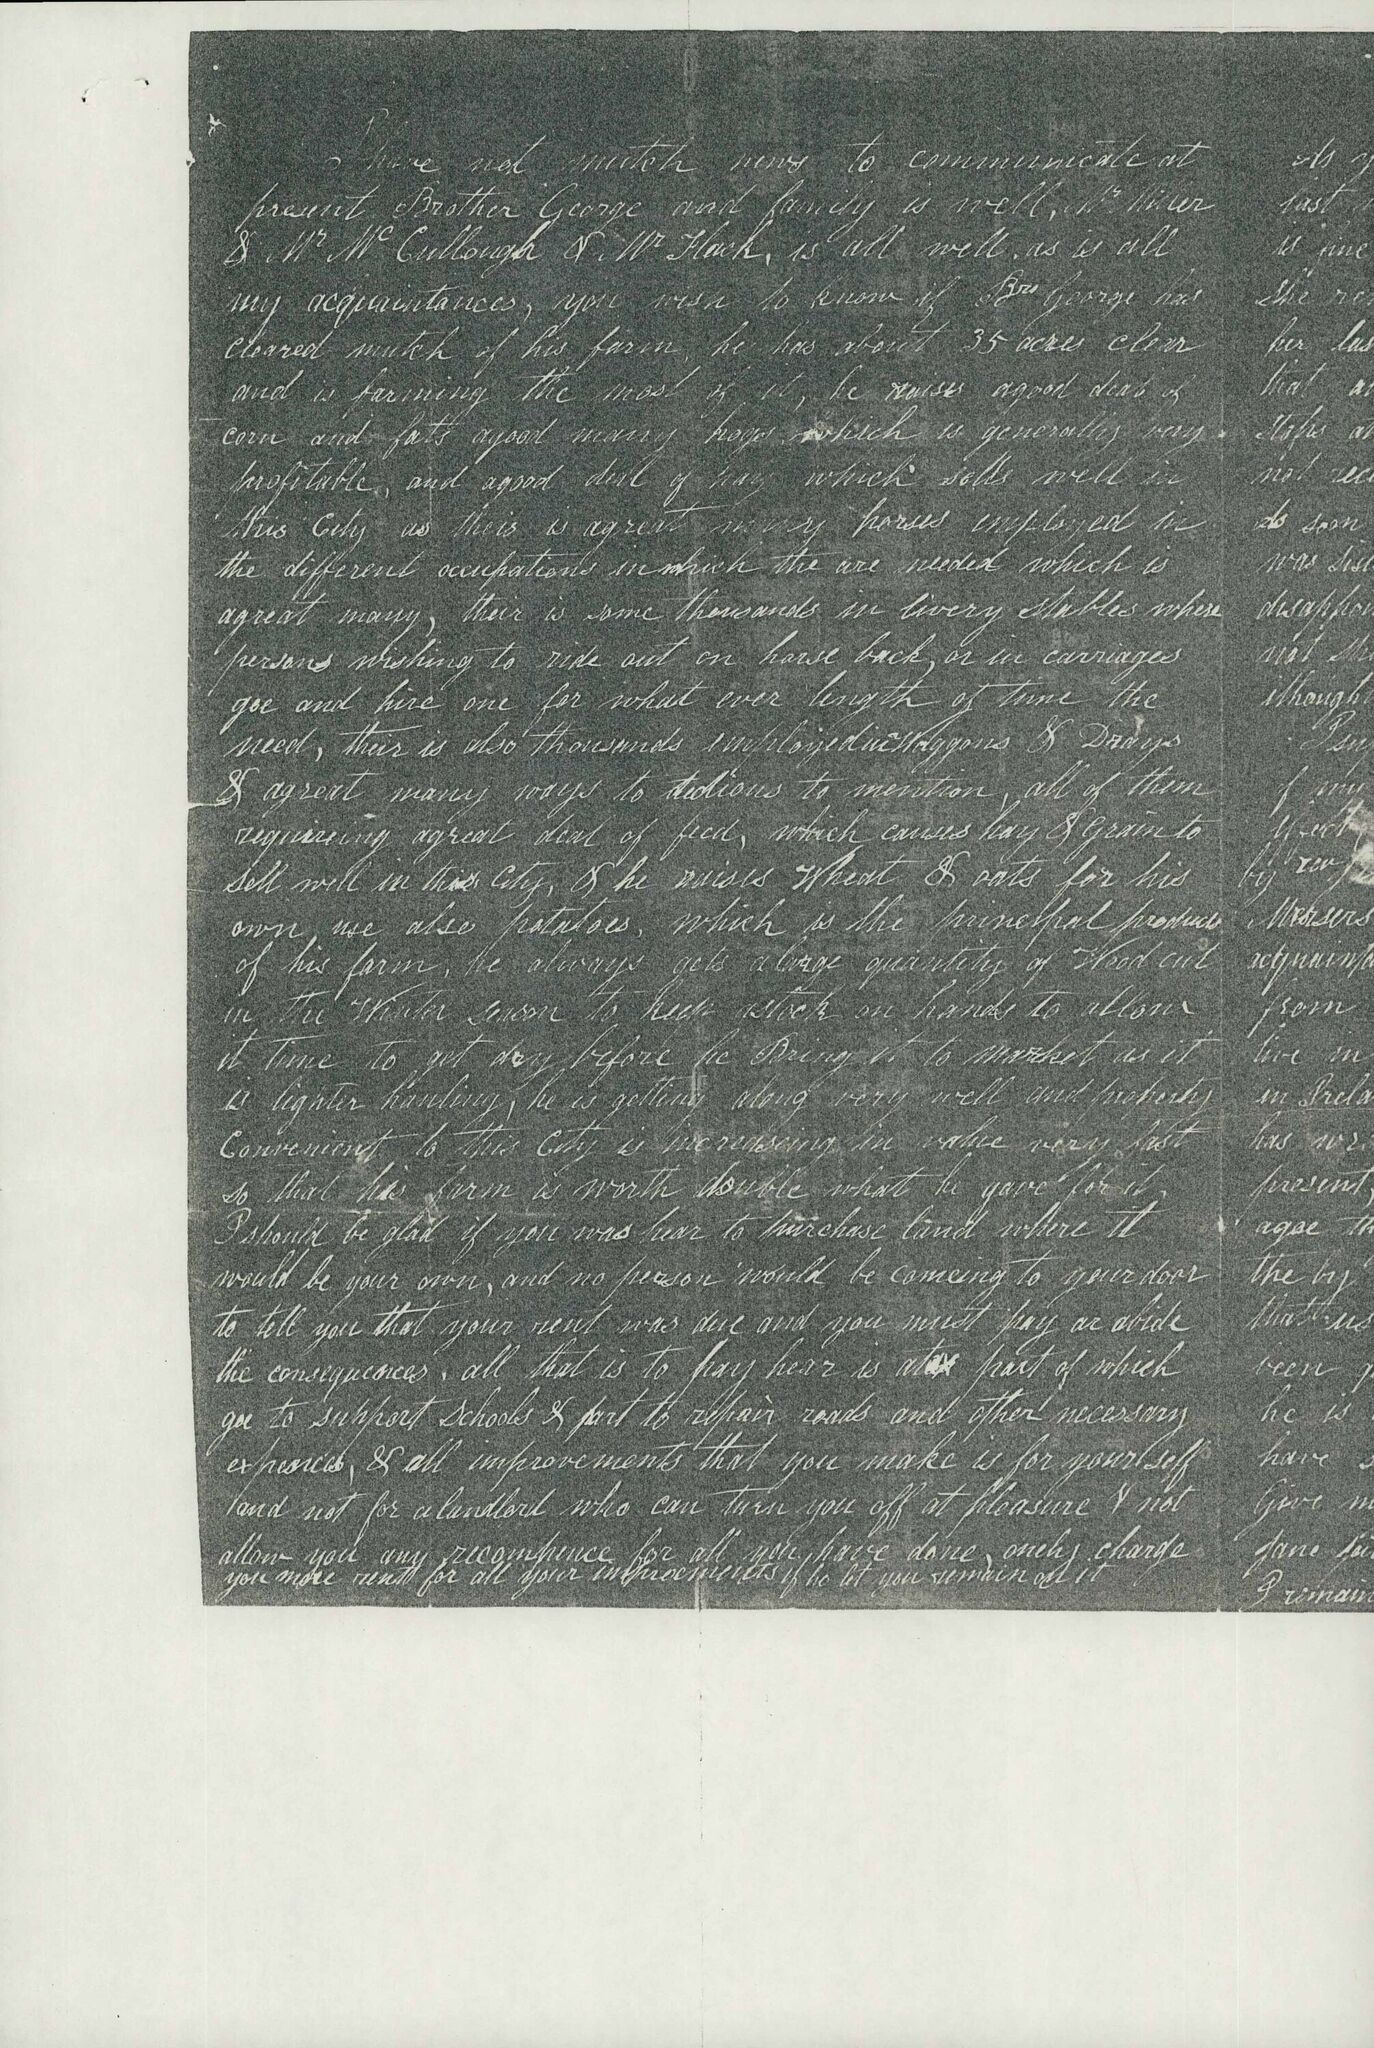 I have not mutch news to communicate at
present Brother George and family is well, Mr
& Mr McCullough & Mr Flack, is all well. as is all
my acquaintances, you wish to know if Bro George has
cleared mutch of his farm, he has about 35 acres clear
and is farming the most of it, he raises agood deal of
corn and fats agood many hogs which is generally very
profitable, and agood deal of hay which sells well in
this City as their is agreat many horses employed in
the different occupations in which the are needed which is
agreat many, their is some thousands in livery stables where
persons wishing to ride out on horse back, or in carriages
goe and hire one for what ever length of time the
need, their is also thousands employed in Waggons & Drays
& agreat many ways to tedious to mention, all of them
requireing agreat deal of feed, which causes hay & Grain to
sell well in this City, & he raises Wheat & oats for his
own use also potatoes, which is the principal products
of his farm, he always gets a large quantity of Wood cut
in the Winter season to keep astock on hands to allow
it time to get dry before he Bring it to market as it
is lighter hauling, he is getting along very well and property
Convenient to this City is increaseing in value very fast
so that his farm is worth double what he gave for it,
I should be glad if you was hear to purchase land where it
would be your own, and no person would be comeing to your door
to tell you that your rent was due and you must pay or abide
the consequences, all that is to pay hear is atax part of which
goe to support Schools & part to repair roads and other necessary
expences, & all improvements that you make is for yourself
and not for alandlord who can turn you off at pleasure & not
allow you any recompence for all you have done, onely charge
you more rent for all your improvements if he let you remain on it
As
last
is fine
She
her las
that
Stops
not rec
As soon
was sist
disappoi
not
ithought
I
of my
by
Messers
acquainta
from
live in
in Irela
has
present,
agoe
the by
that us
been
he is
have
Give m
Jane
I remain